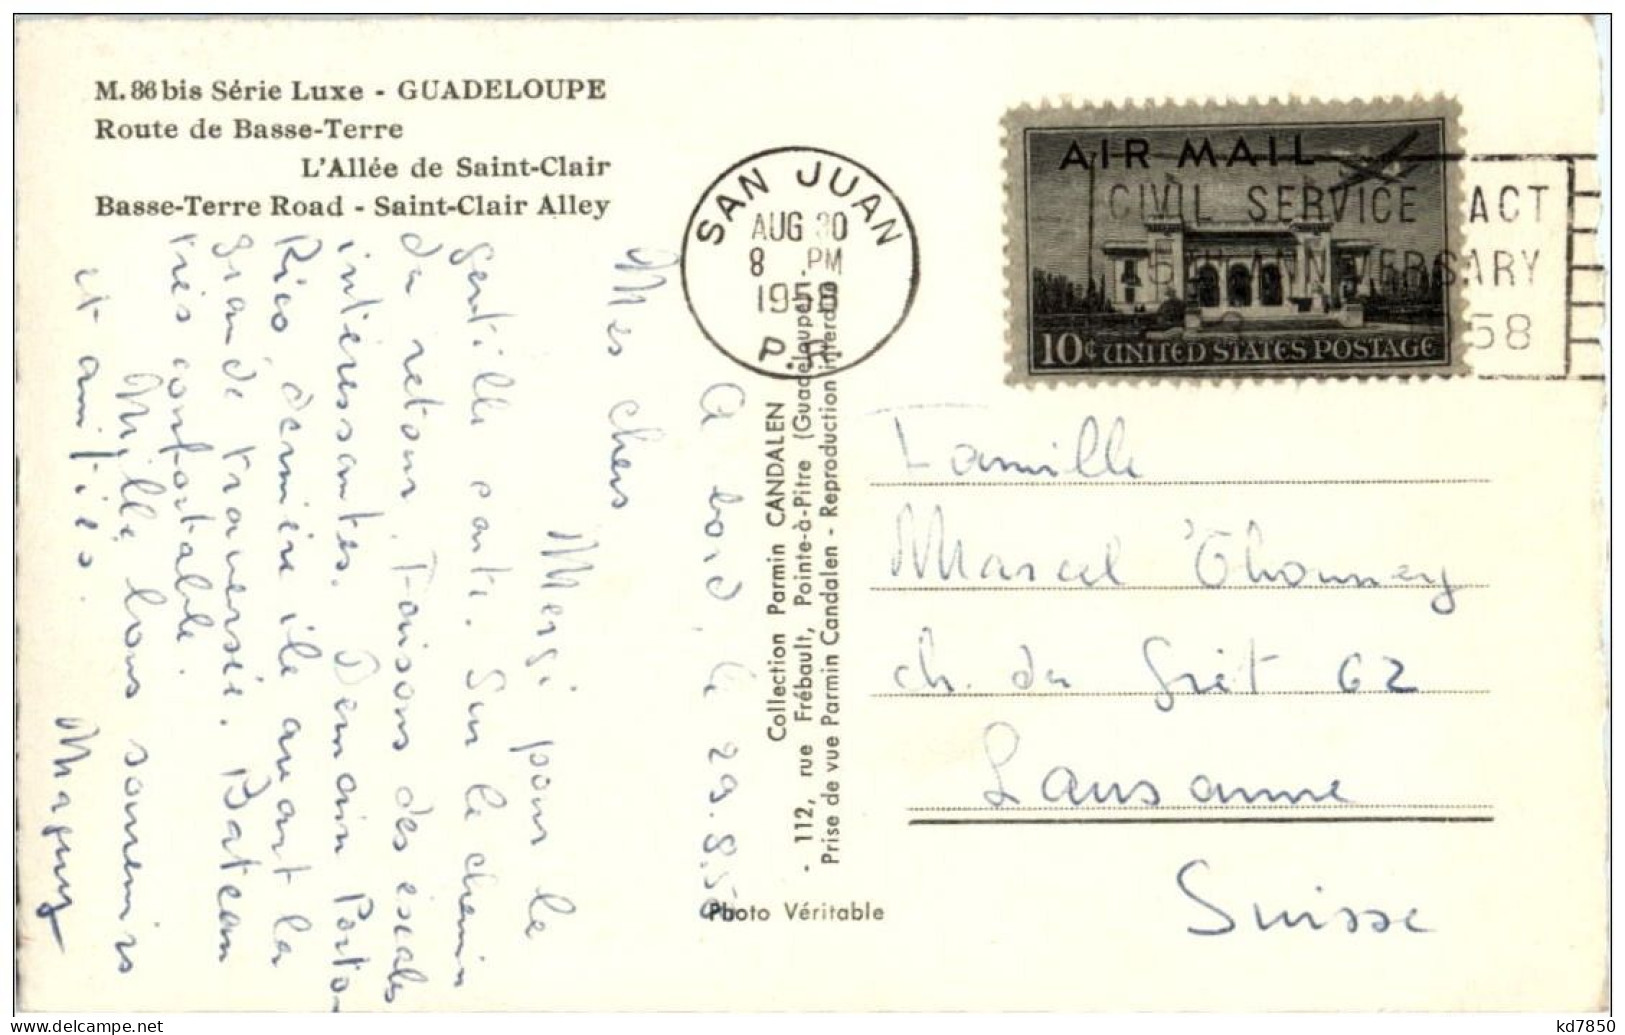 M. 86 bis Série Luxe - GUADELOUPE
Route de Basse-Terre
L'Allée de Saint-Clair
Basse-Terre Road - Saint-Clair Alley
SAN JUAN
AUG 30
8 PM
1958
P.R.
AIR MAIL
10¢ UNITED STATES POSTAGE
CIVIL SERVICE ACT
ANNIVERSARY
58
A bord, le 29.8.58
Mes chers
Merci pour le
gentille carte. Sur le chemin
du retour. Faisons des escales
intéressantes. Demain Porto-
Rico, dernière île avant la
grande traversée. Bateau
très confortable.
Mille bons souvenirs
et amitiés.
Maguy
Collection Parmin CANDALEN
- 112, rue Frébault, Pointe-à-Pitre (Guadeloupe)
Prise de vue Parmin Candalen - Reproduction interdite
Photo Véritable
Famille
Marcel Thonney
ch. du Grêt 62
Lausanne
Suisse
kd7850